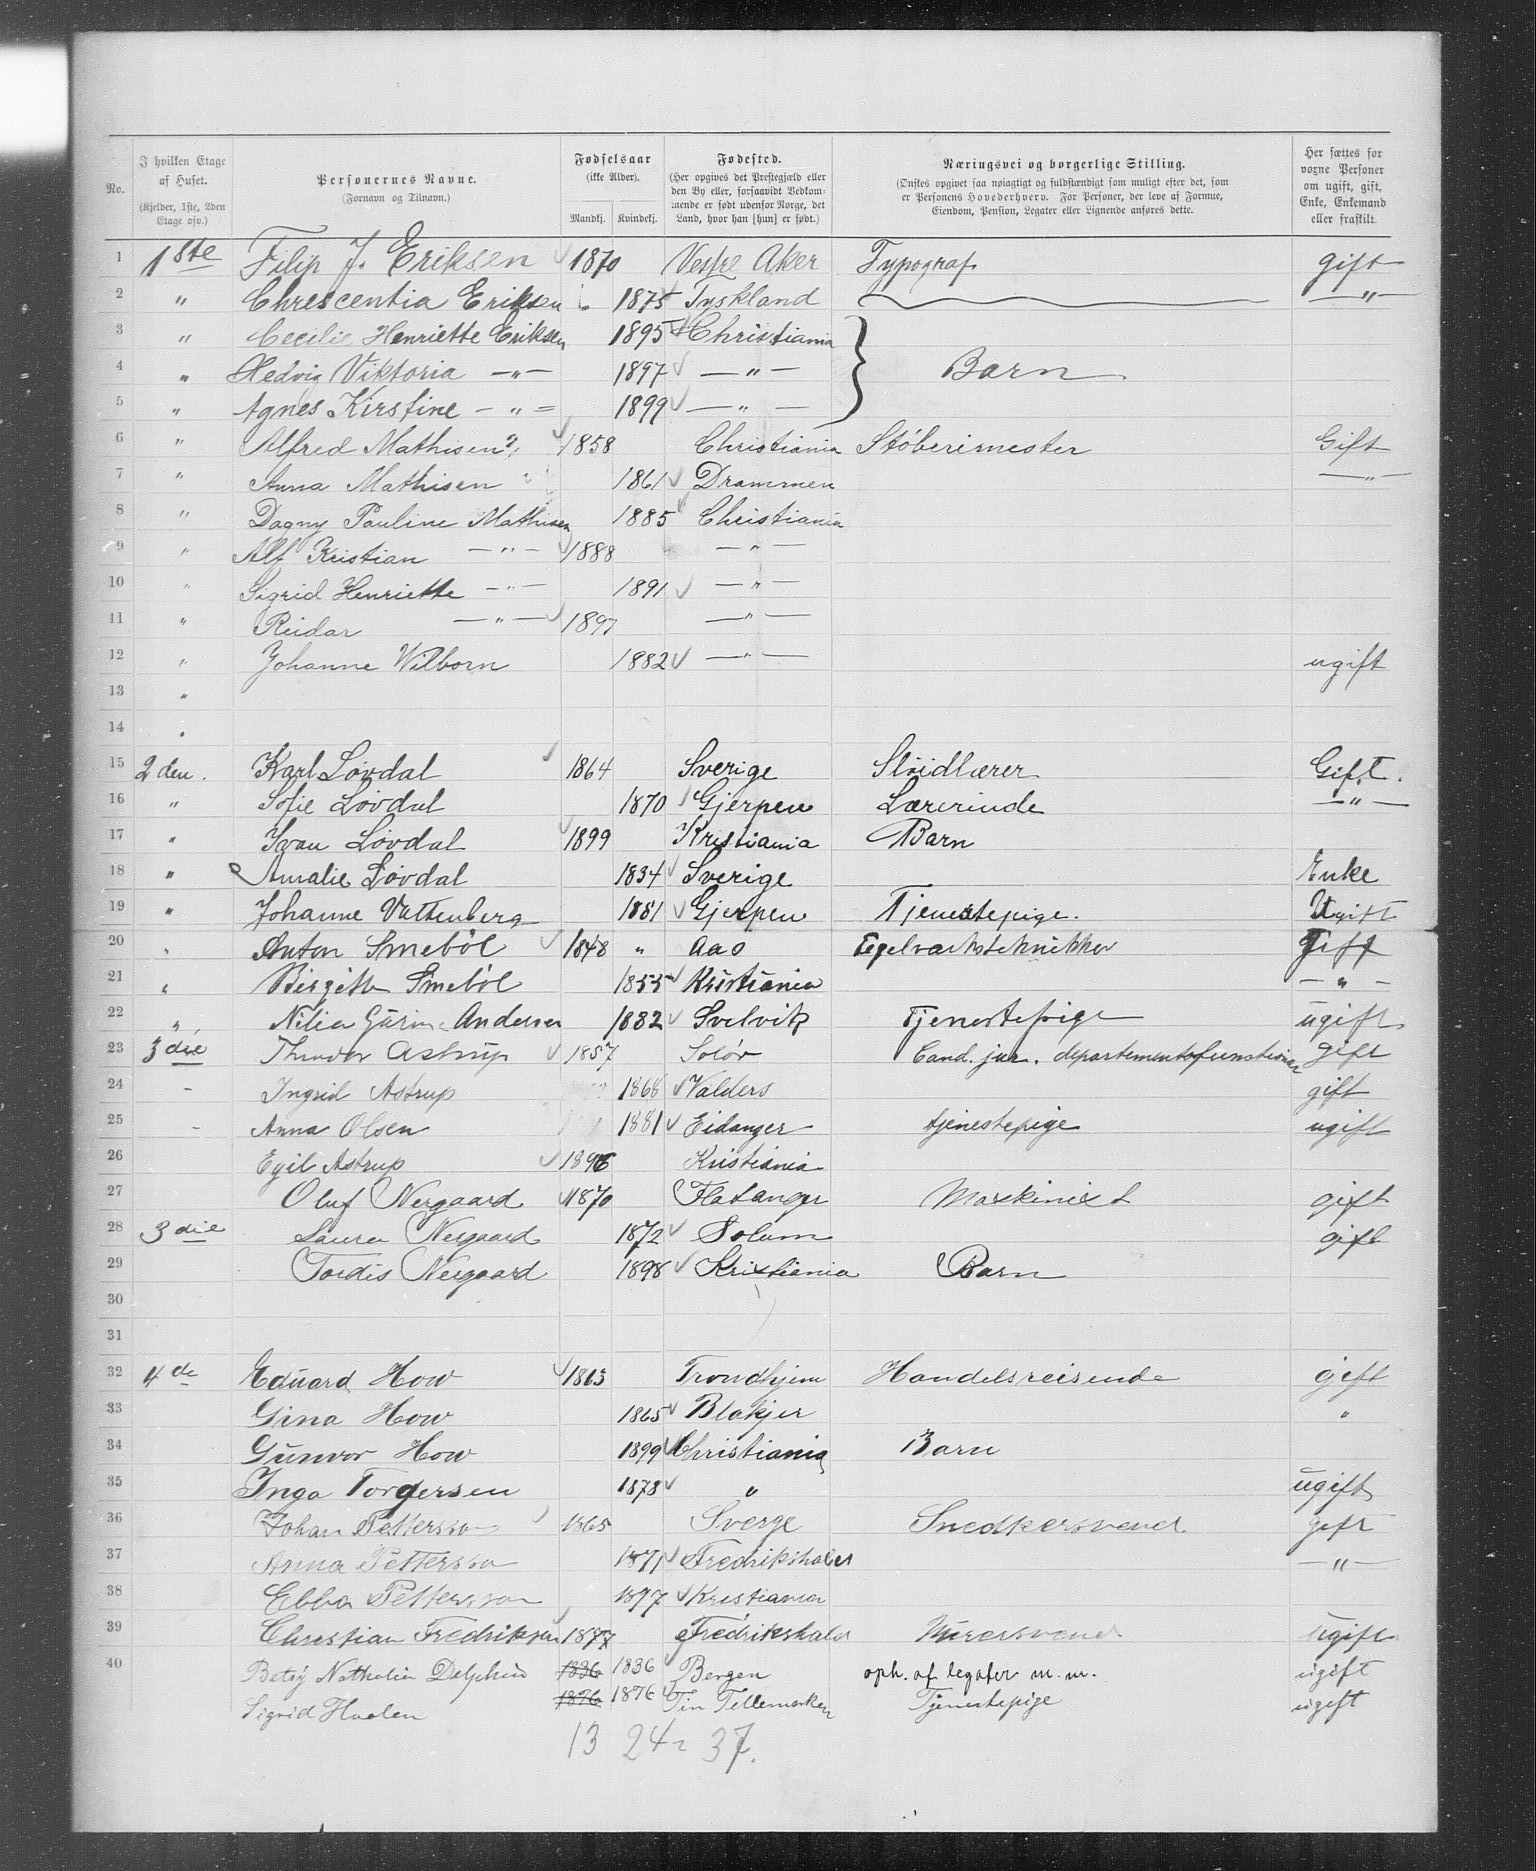 No. | I hvilken Etage af Huset. (Kjelder, 1ste, 2den Etage osv.) | Personernes Navne. (Fornavn og Tilnavn.) | Fødselsaar (ikke Alder). Mandkj. Kvindekj. | Fødested. (Her opgives det Prestegjæld eller den By eller, forsaavidt Vedkommende er født udenfor Norge, det Land, hvor han [hun] er født.) | Næringsvei og borgerlige Stilling. (Ønskes opgivet saa nøiagtigt og fuldstændigt som muligt efter det, som er Personens Hovederhverv. For Personer, der leve af Formue, Eiendom, Pension, Legater eller Lignende anføres dette. | Her sættes for voxne Personer om ugift, gift, Enke, Enkemand eller fraskilt.
1 1ste Filip J. Eriksen 1870 Vestre Aker Typograf gift
2 " Chrescentia Eriksen 1875 Tyskland — " —
3 " Cecilie Henriette Eriksen 1895 Christiania
4 " Hedvig Viktoria — " — 1897 — " — Barn
5 " Agnes Kirstine — " — 1899 — " —
6 " Alfred Mathisen 1858 Christiania Støberimester Gift
7 " Anna Mathisen 1861 Drammen — " —
8 " Dagny Pauline Mathisen 1885 Christiania
9 " Alf Kristian — " — 1888 — " —
10 " Sigrid Henriette — " — 1891 — " —
11 " Reidar — " — 1897 — " —
12 " Johanne Wilborn 1882 — " — ugift
13 "
14 "
15 2den. Karl Løvdal 1864 Sverige Sløidlærer Gift.
16 " Sofie Løvdal 1870 Gjerpen Lærerinde — " —
17 " Ivan Løvdal 1899 Kristiania Barn
18 " Amalie Løvdal 1834 Sverige Enke
19 " Johanne Vattenberg 1881 Gjerpen Tjenestepige. Ugift
20 " Anton Smebøl 1848 " Aas Tegelværksteknikker Gift
21 " Birgitte Smebøl 1855 Kristiania — " —
22 " Nilia Gurine Andersen 1882 Svelvik Tjenestepige ugift
23 3die Thendor Astrup 1857 Solør Cand. jur. departementsfunktionær gift
24 - Ingrid Astrup 1866 Valders gift
25 - Anna Olsen 1881 Eidanger tjenestepige ugift
26 Egil Astrup 1896 Kristiania
27 Oluf Nergaard 1870 Flatanger Maskinist gift
28 3die Laura Nergaard 1872 Solum gift
29 Tordis Nergaard 1898 Kristiania Barn
30
31
32 4de Eduard How 1863 Trondhjem Handelsreisende gift
33 Gina How 1865 Blakjer "
34 Gunvor How 1899 Christiania Barn
35 Inga Torgersen 1878 " ugift
36 Johan Pettersson 1865 Sverge Snedkersvend gift
37 Anna Pettersson 1871 Fredrikshald — " —
38 Ebba Pettersson 1897 Kristiania
39 Christian Fredriksen 1877 Fredrikshald Murersvend ugift
40 Betsy Nathalia Delphin 1836 1836 Bergen oph. af legater m.m. ugift
Sigrid Haalen 1876 1876 Tin Tellemarken Tjenestepige ugift
13 24 = 37.